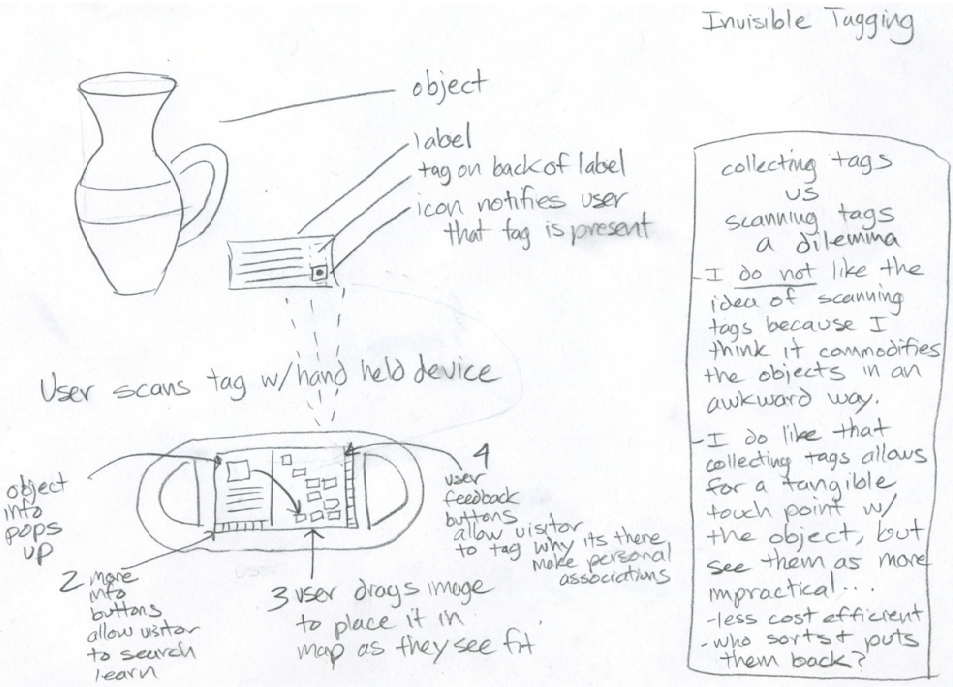 Invisible Tagging
object
label
tag on back of label
icon notifies user
that tag is present
User scans tag w/ hand held device
object
info
pops
up
2 more
info
buttons
allow visitor
to search
learn
3 user drags image
to place it in
map as they see fit
4
user
feedback
buttons
allow visitor
to tag why its there
make personal
associations
collecting tags
vs
scanning tags
a dilemma
-I do not like the
idea of scanning
tags because I
think it commodifies
the objects in an
awkward way.
-I do like that
collecting tags allows
for a tangible
touch point w/
the object, but
see them as more
impractical...
-less cost efficient
-who sorts + puts
them back?